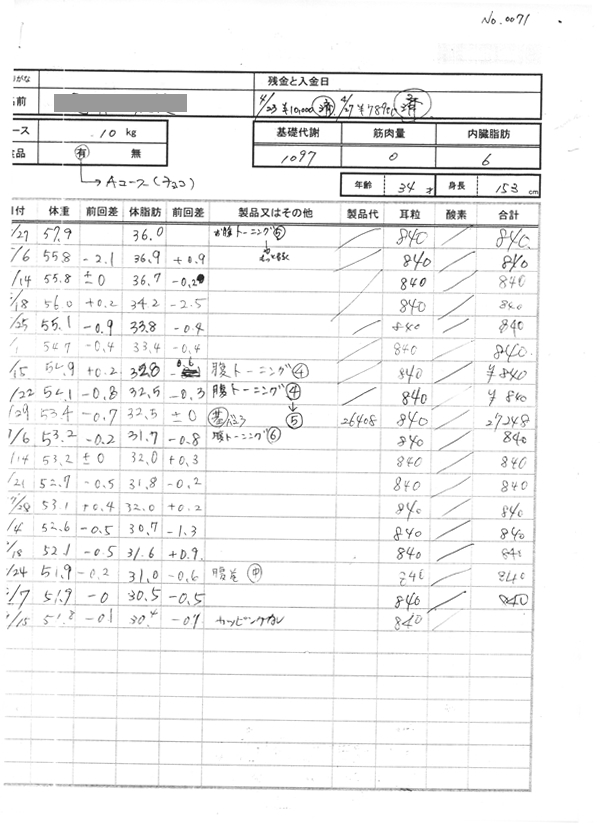 No.0071
残金と入金日
名前
4/23 ¥10,000 済 4/27 ¥789
ース 10 kg
基礎代謝 筋肉量 内臓脂肪
品 有 無
1097 0 6
→Aコース(チョコ)
年齢 34 才 身長 153 cm
付 体重 前回差 体脂肪 前回差 製品又はその他 製品代 耳粒 酸素 合計
/27 57.9 36.0 トーニング⑤ 840 840
/6 55.8 -2.1 36.9 +0.9 840 840
/14 55.8 ±0 36.7 -0.2 840 840
/18 56.0 +0.2 34.2 -2.5 840 840
/25 55.1 -0.9 33.8 -0.4 840 840
54.7 -0.4 33.4 -0.4 840 840
/15 54.9 +0.2 32.8 0.6 腹トーニング④ 840 ¥840
/22 54.1 -0.8 32.5 -0.3 腹トーニング④ 840 ¥840
/29 53.4 -0.7 32.5 ±0 ⑤ 26408 840 27248
/6 53.2 -0.2 31.7 -0.8 腹トーニング⑥ 840 840
/14 53.2 ±0 32.0 +0.3 840 840
/21 52.7 -0.5 31.8 -0.2 840 840
/28 53.1 +0.4 32.0 +0.2 840 840
/4 52.6 -0.5 30.7 -1.3 840 840
/18 52.1 -0.5 31.6 +0.9 840 840
/24 51.9 -0.2 31.0 -0.6 中 840 840
/7 51.9 -0 30.5 -0.5 840 840
/15 51.8 -01 30.4 カッピングなし 840